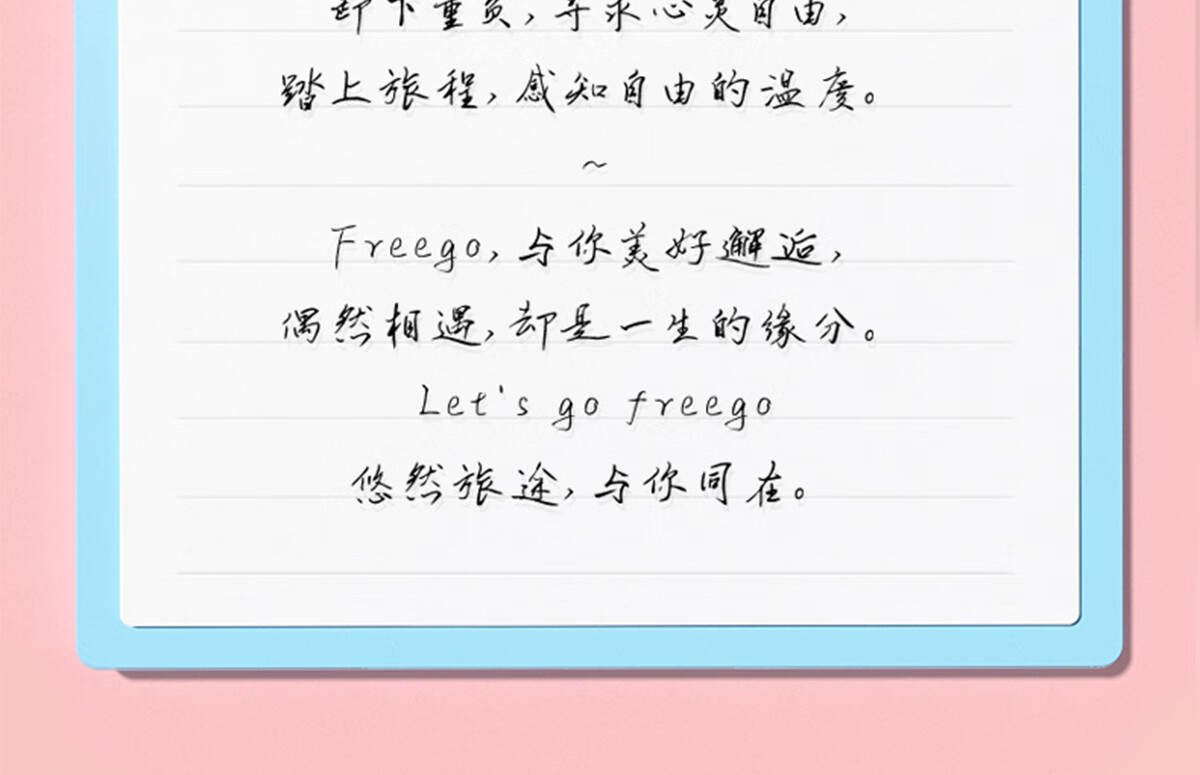 卸下重负，寻求心灵自由，
踏上旅程，感知自由的温度。
~
Freego，与你美好邂逅，
偶然相遇，却是一生的缘分。
Let's go freego
悠然旅途，与你同在。